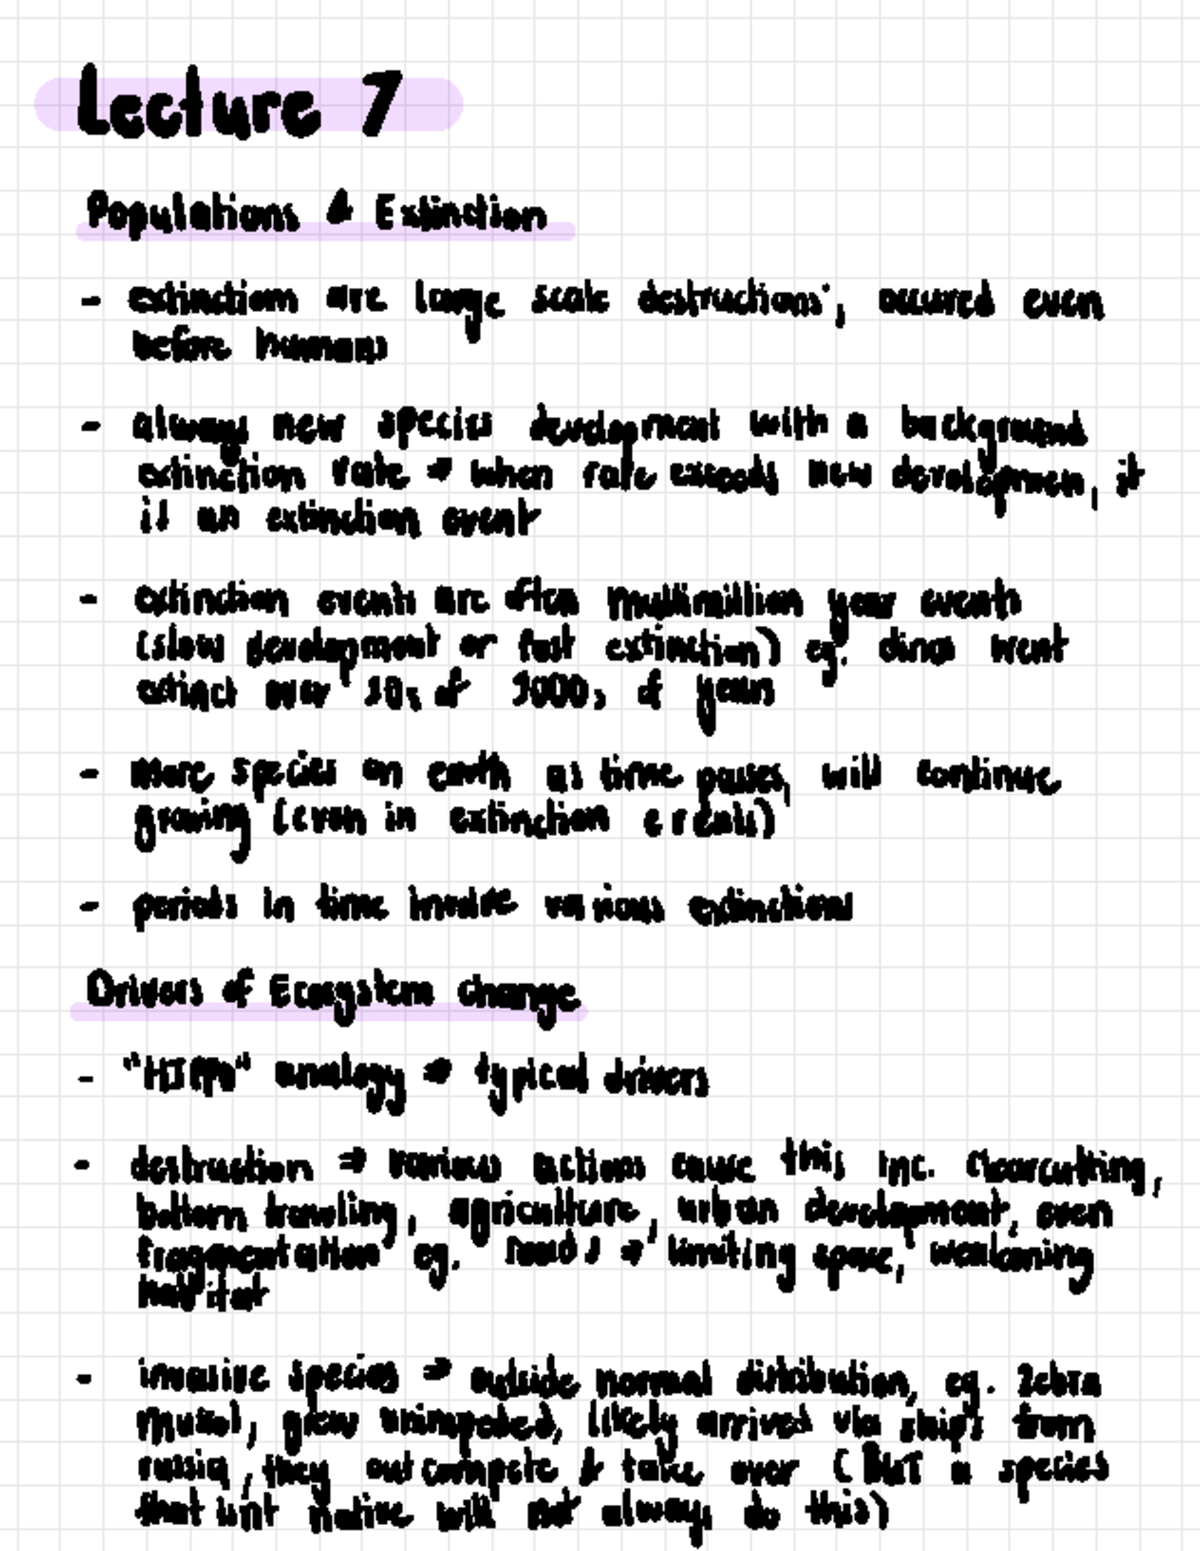 Lecture 7
Populations & Extinction
- extinctions are large scale destructions; occured even
before humans
- always new species development with a background
extinction rate → when rate exceeds new developmen, it
is an extinction event
- extinction events are often multimillion year events
(slow development or fast extinction) eg. dinos went
extinct over 10s of 1000s of years
- more species on earth as time passes, will continue
growing (even in extinction events)
- periods in time involve various extinctions
Drivers of Ecosystem change
- "HIPPO" analogy → typical drivers
- destruction → various actions cause this inc. clearcutting,
bottom trawling, agriculture, urban development, even
fragmentation eg. roads → limiting space, weakening
habitat
- invasive species → outside normal distribution, eg. Zebra
mussel, grew unimpeded, likely arrived via ships from
russia, they outcompete & take over (BUT a species
that isnt native will not always do this)